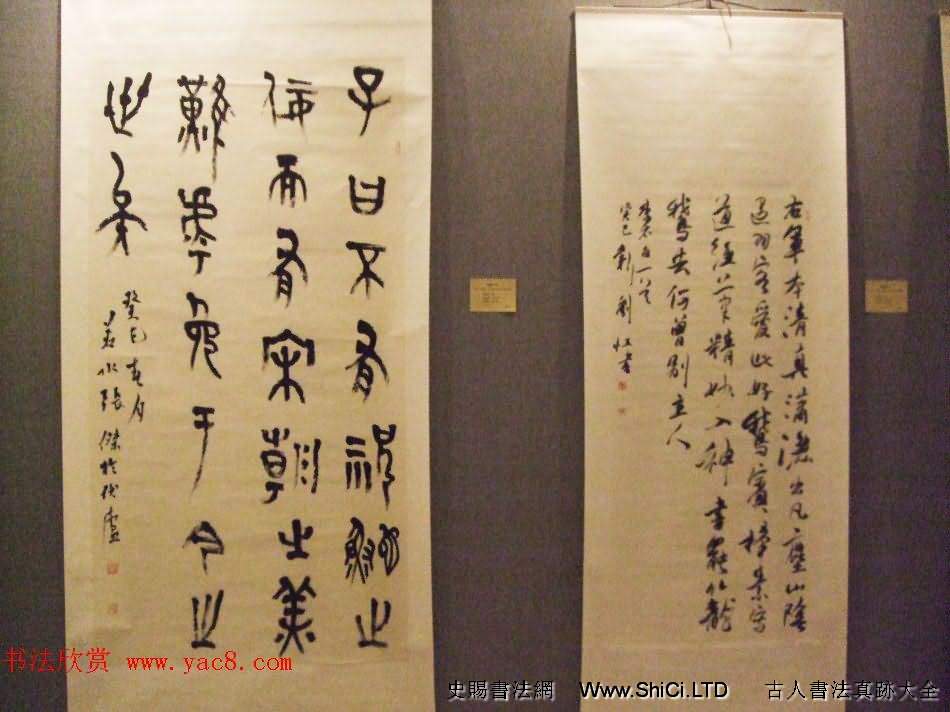 子曰不有祝鮀之
佞而有宋朝之美
難乎免于今之
世矣
癸巳春月
張傑於
右軍本清真瀟灑出凡塵山陰
過羽客愛此好鵝賓掃素寫
道經筆精妙入神書罷籠
鵝去何曾別主人
癸巳 書
书法欣赏 www.yac8.com
史賜書法網 Www.ShiCi.LTD 古人書法真跡大全